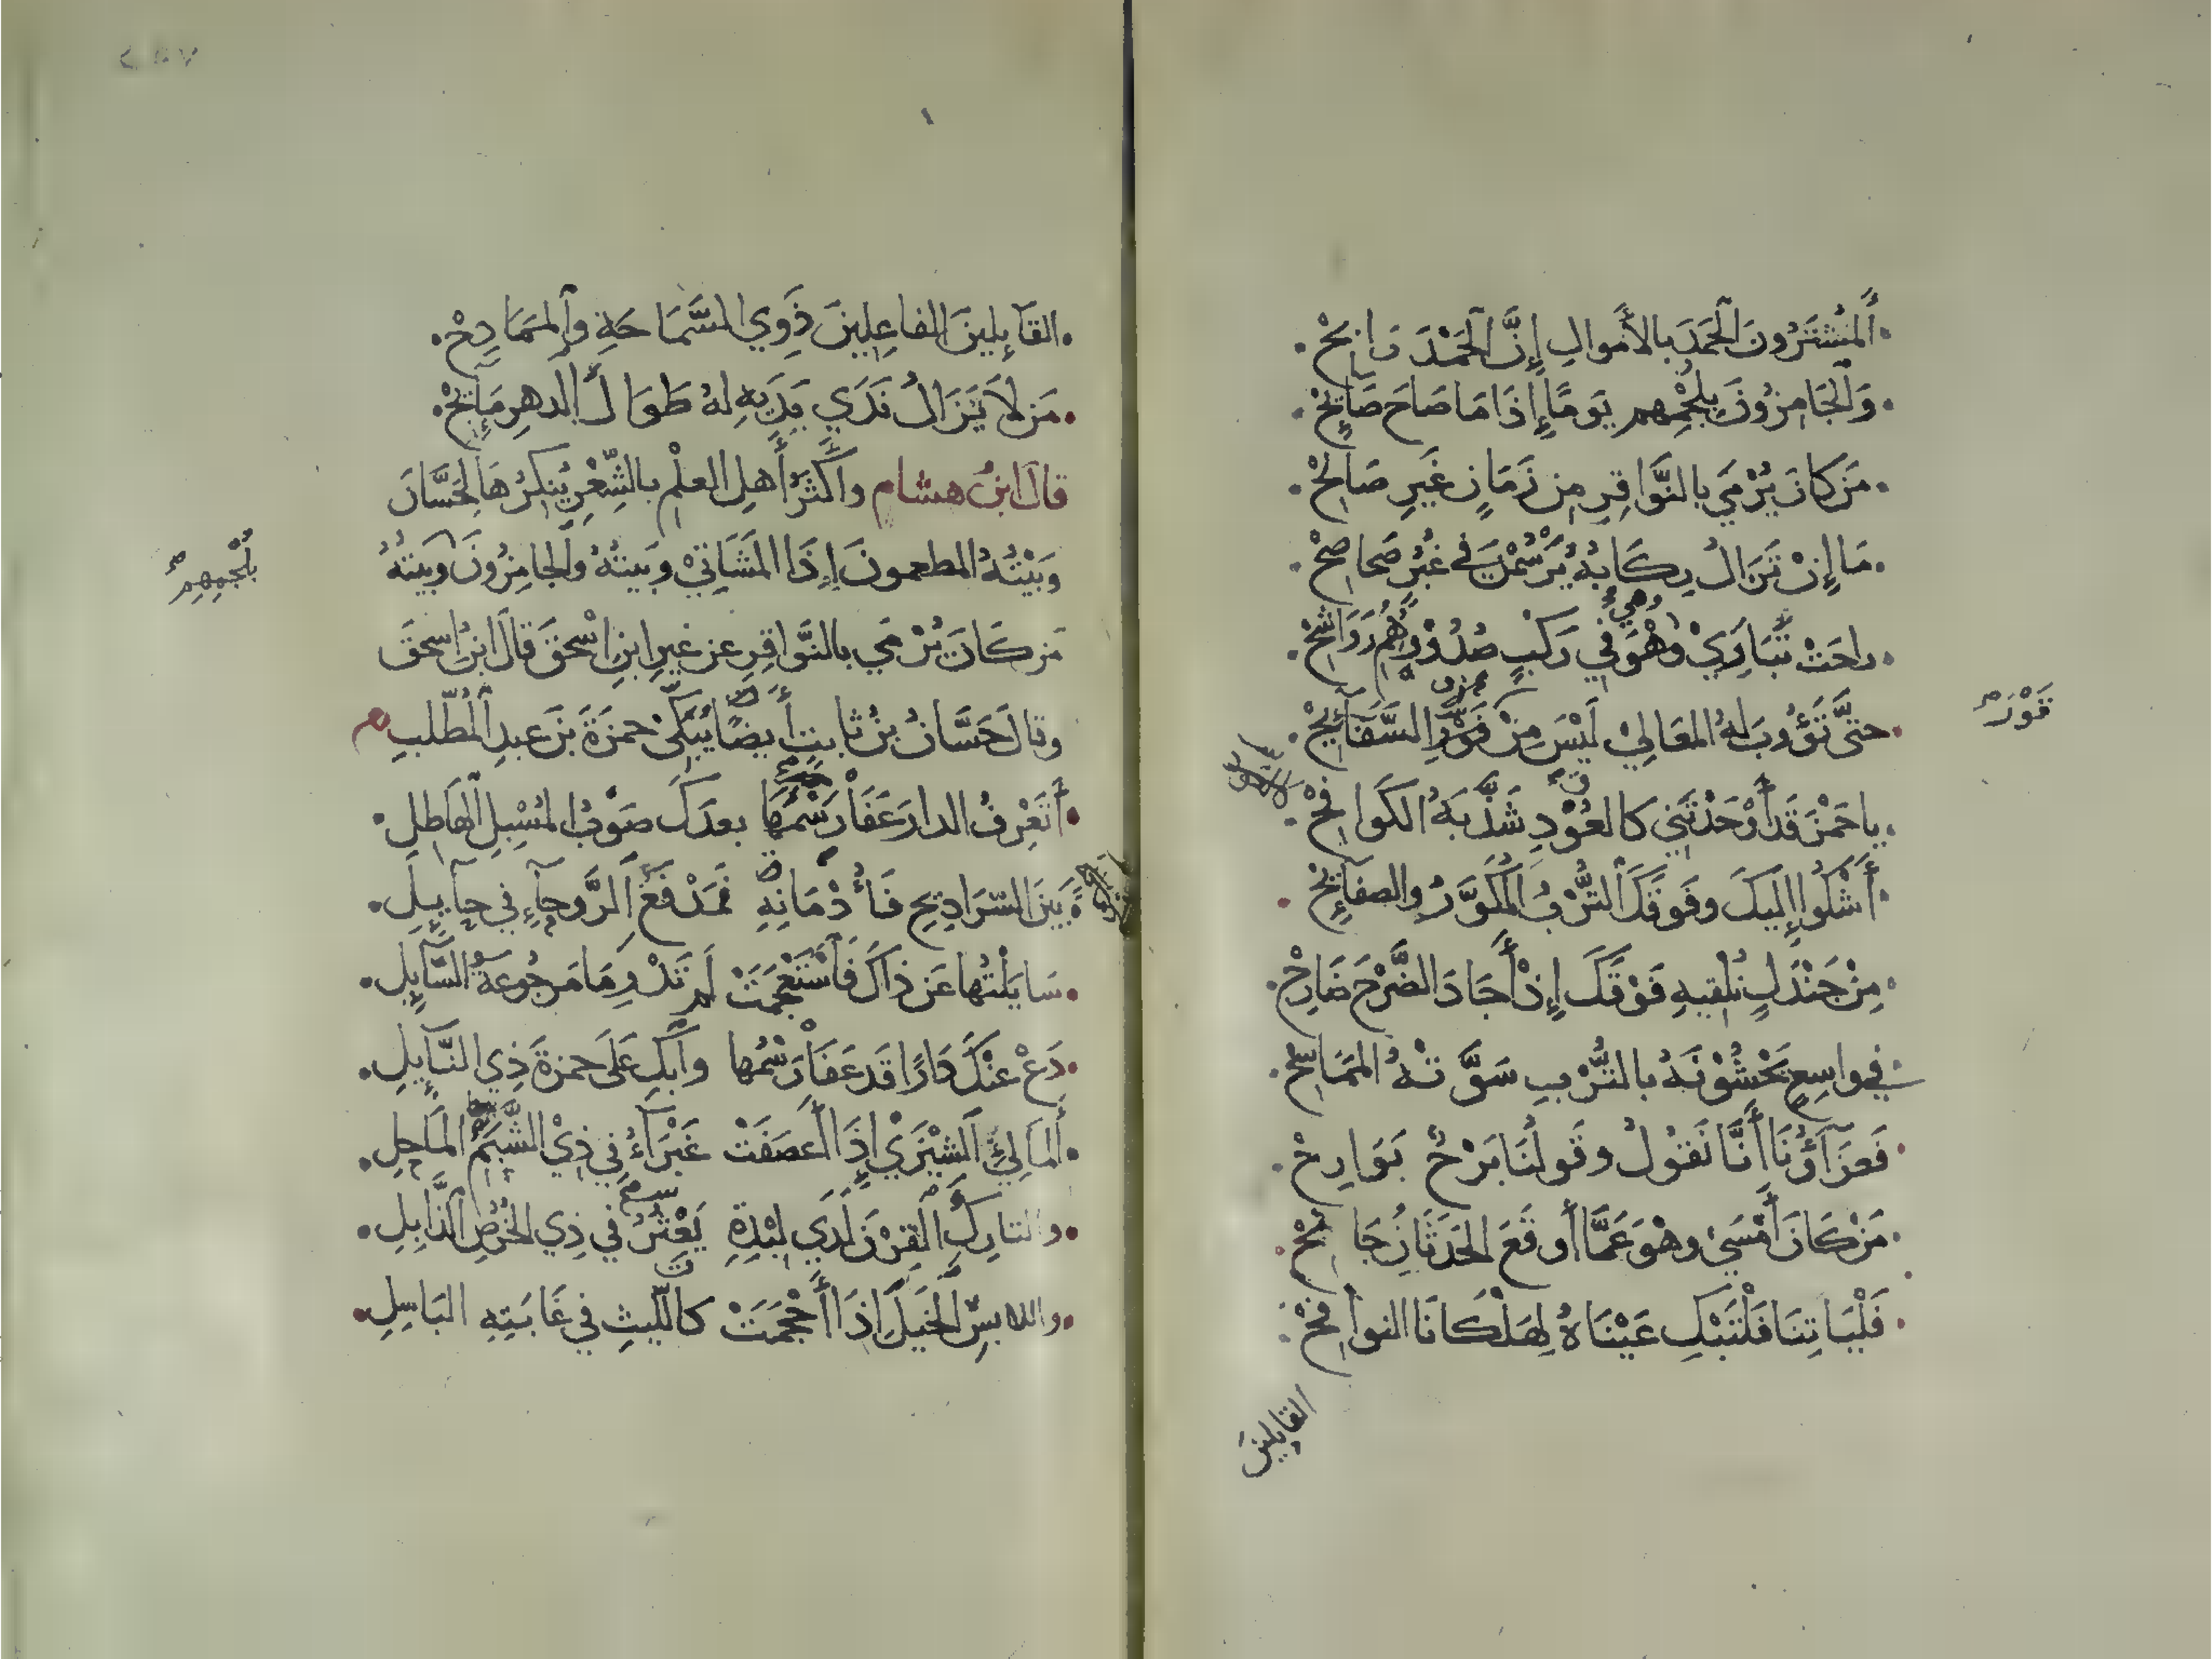 المُشْتَرُونَ الحَمْدَ بالأموالِ إِنَّ الحَمْدَ رَابِحْ
وَالجَامِزُونَ بِلُجْمِهِم يَومًا إِذَا مَا صَاحَ صَائِحْ
مَن كانَ يُرْمَي بالنَّواقِرِ مِن زَمَانٍ غَيرِ صَالِحْ
مَا إِنْ تَزَالُ رِكَابُهُ يَرْسُمْنَ في غُبْرٍ صَحاصِحْ
راحَتْ تُبَارِيْ وَهْوَ في رَكْبٍ صُدُوْرُهُم رَوَاشِحْ
وهي
حتَّى تَؤُوبَ لهُ المَعَالِيْ لَيْسَ مِنْ فَوْزِ السَّفَائِحْ
فَوْزِ
ياحَمْزَ قَد أَوْحَدْتَنِي كالعُوْدِ شَذَّبَهُ الكَوَافِحْ
أَشْكُوا إِلَيكَ وفَوقَكَ التُّرْبُ المُكَوَّرُ والصفائِحْ
مِنْ جَنْدَلٍ نُلْقِيهِ فَوْقَكَ إِذْ أَجَادَ الضَّرْحَ ضَارِحْ
في واسِعٍ يَحْشُوْنَهُ بالتُّرْبِ سَوَّتْهُ المَمَاسِحْ
فَعَزَآؤُنَا أَنَّا نَقُولُ وقَولُنَا بَرْحٌ بَوَارِحْ
مَنْ كَانَ أَمْسَىٰ وهْوَ عَمَّا أوقَعَ الحَدَثَانُ جَانِحْ
فَلْيَاتِنَا فَلْتَبْكِ عَيْنَاهُ لِهَلْكَانَا النوافِحْ
القَايِلِينَ
القَآئِلِينَ الفاعِلِينَ ذَوِي السَّمَاحَةِ والمَمَادِحْ
مَن لَا يَزَالُ نَدَي يَدَيهِ لهُ طَوَالَ الدهرِ مَآئِحْ
قالَ ابنُ هشام وأكثَرُ أَهلِ العلْمِ بالشِّعْرِ يُنكِرُهَا لِحَسَّانَ
وَبَيْتُهُ المطعمونَ إِذَا المَشَاتِيْ وَبَيتُهُ والجامِزُونَ وبَيتُهُ
بِلُجْمِهِمْ
مَن كَانَ يُرْمَي بالنَّواقِرِ عن غيرِ ابنِ اسْحقَ قالَ ابنُ اسحقَ
وقالَ حَسَّانُ بنُ ثابتٍ أيضًا يُبَكِّى حمزَةَ بنَ عبدِ المُطَّلبِ
أَتَعْرِفُ الدارَ عَفَا رَسْمُهَا بعدَكَ صَوْبُ المُسْبِلِ الهَاطِلِ
بَينَ السَّرَادِيحِ فَأُدْمَانِهِ فَمَدْفَعِ الرَّوحآءِ في حآئِلِ
سَايَلْتُها عَن ذَاكَ فَاسْتَعْجَمَتْ لم تَدْرِ مَا مَرجُوعَةُ السَّآئِلِ
دَعْ عَنْكَ دَارًا قَد عَفَا رَسْمُها وابْكِ عَلَى حمزةَ ذِي النَّآئِلِ
المَالِئِ الشِيْزَيْ إِذَا أَعصَفَتْ غَبْرَآءُ في ذِيْ الشَّبِمِ المَاحِلِ
والتارِكِ القِرْنَ لَدَي لِبْدِةِ يَعْثُرُ في ذِي الخُرْصِ الذَّابِلِ
واللابسِ الخَيلَ إِذَا أَحْجَمَتْ كاللّيثِ في غَابَتِهِ البَاسِلِ